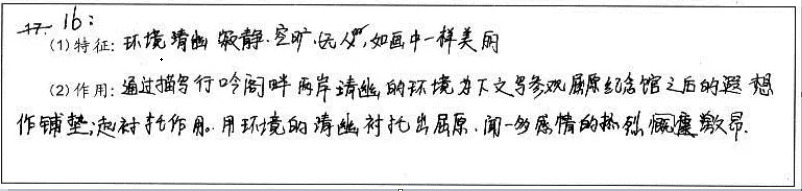 17. 16:
(1)特征:环境清幽 寂静.空旷.优美,如画中一样美丽
(2)作用:通过描写行吟阁畔两岸清幽的环境为下文写参观屈原纪念馆之后的遐想
作铺垫;起衬托作用。用环境的清幽衬托出屈原、闻一多感情的热烈慷慨激昂.